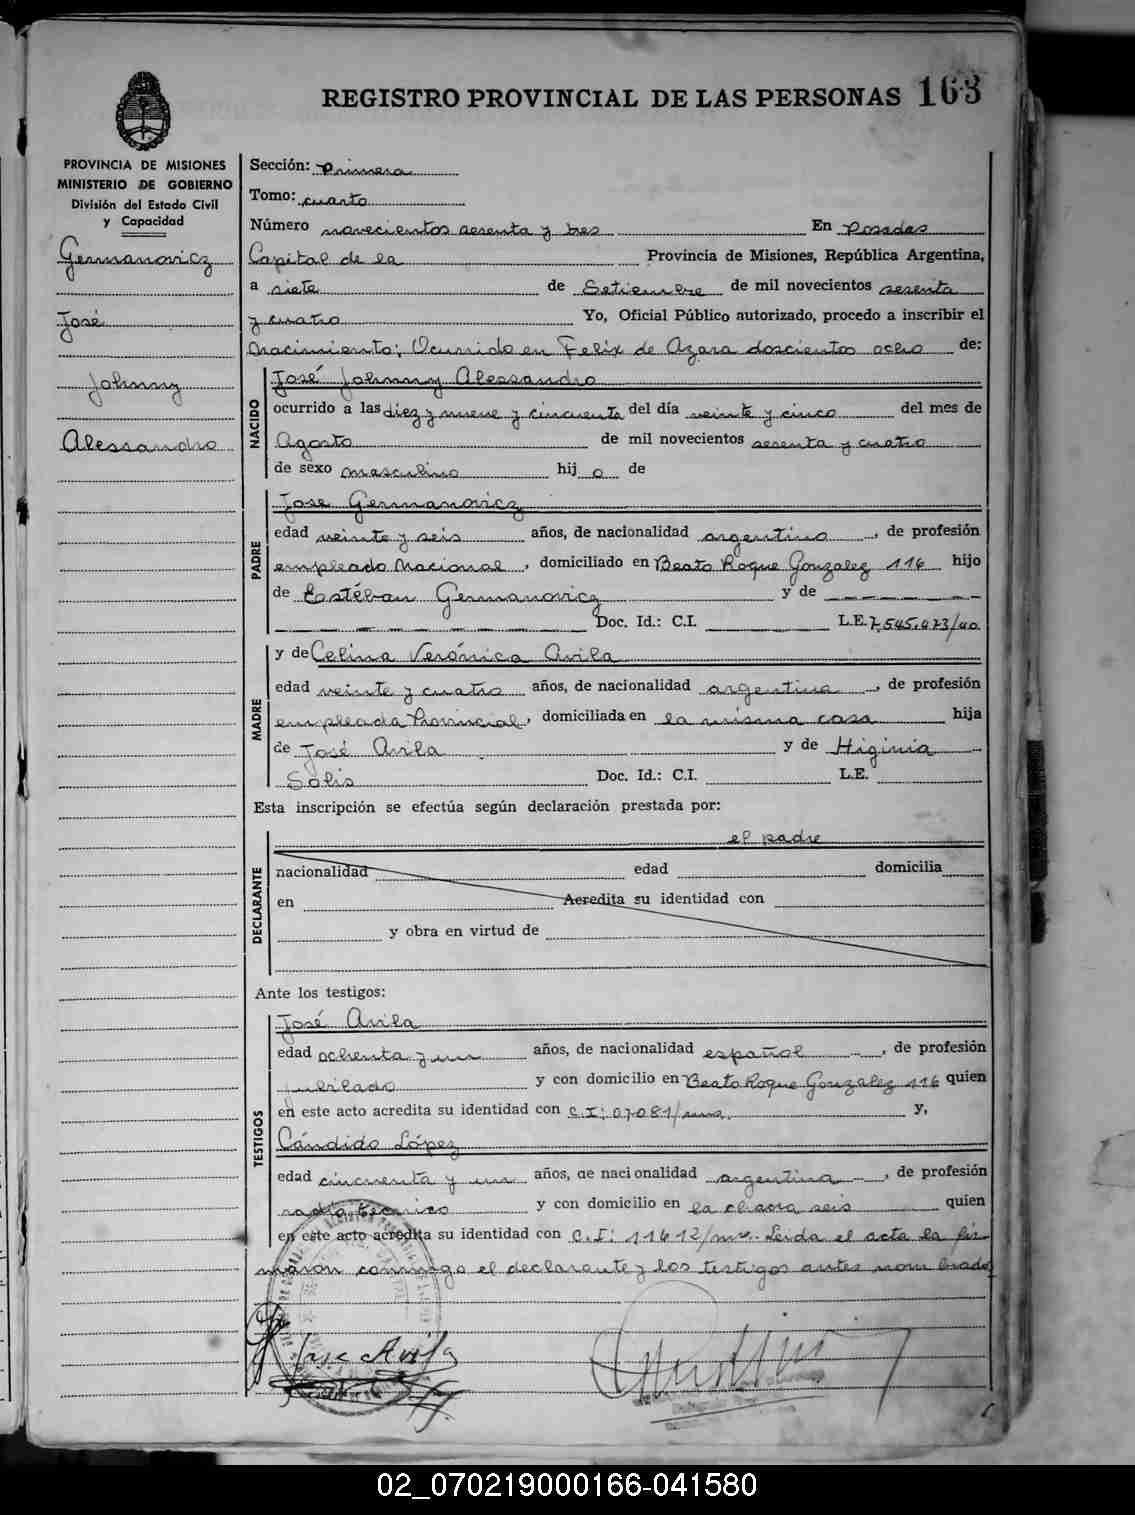 REGISTRO PROVINCIAL DE LAS PERSONAS 163
PROVINCIA DE MISIONES
MINISTERIO DE GOBIERNO
División del Estado Civil
y Capacidad
Germanovicz
José
Johnny
Alessandro
Sección: Primera
Tomo: cuarto
Número novecientos sesenta y tres En Posadas
Capital de la Provincia de Misiones, República Argentina,
a siete de Setiembre de mil novecientos sesenta
y cuatro Yo, Oficial Público autorizado, procedo a inscribir el
Nacimiento; Ocurrido en Felix de Azara doscientos ocho de:
NACIDO
José Johnny Alessandro
ocurrido a las diez y nueve y cincuenta del día veinte y cinco del mes de
Agosto de mil novecientos sesenta y cuatro
de sexo masculino hij o de
PADRE
Jose Germanovicz
edad veinte y seis años, de nacionalidad argentino, de profesión
empleado Nacional, domiciliado en Beato Roque Gonzalez 116 hijo
de Estéban Germanovicz y de
Doc. Id.: C.I. L.E.
MADRE
y de Celina Verónica Avila
edad veinte y cuatro años, de nacionalidad argentina, de profesión
empleada Provincial, domiciliada en la misma casa hija
de José Avila y de Higinia
Solis Doc. Id.: C.I. L.E.
Esta inscripción se efectúa según declaración prestada por:
el padre
DECLARANTE
nacionalidad edad domicilia
en Acredita su identidad con
y obra en virtud de
Ante los testigos:
TESTIGOS
José Avila
edad ochenta y un años, de nacionalidad español, de profesión
jubilado y con domicilio en Beato Roque Gonzalez 116 quien
en este acto acredita su identidad con C.I: 07081/mns. y,
Cándido López
edad cincuenta y un años, de nacionalidad argentina, de profesión
radio técnico y con domicilio en la chacra seis quien
en este acto acredita su identidad con C.I: 11612/ms. Leida el acta la fir
maron conmigo el declarante y los testigos antes nombrados
Jose Avila
02_070219000166-041580